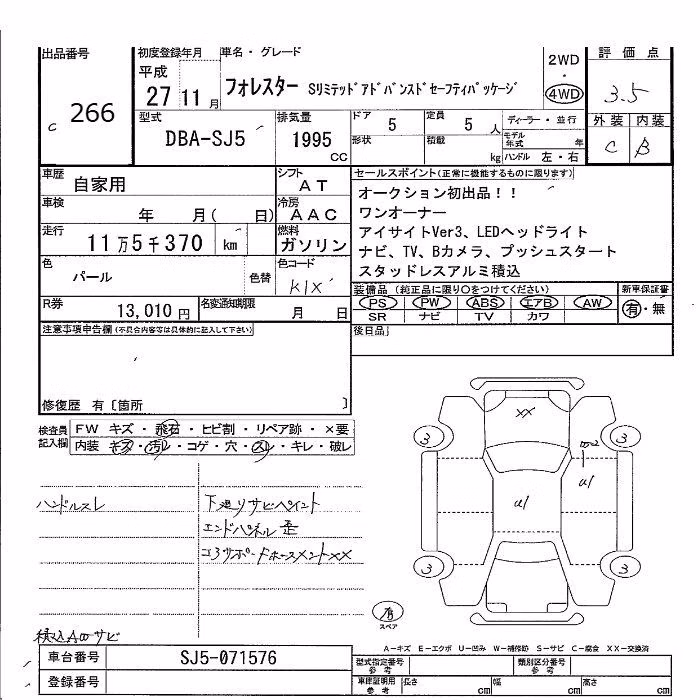 出品番号
266
c
初度登録年月
平成
27 11 月
車名・グレード
フォレスター Sリミテッドアドバンスドセーフティパッケージ
2WD
・
4WD
評価点
3.5
外装 内装
C B
型式
DBA-SJ5
排気量
1995
cc
ドア
5
定員
5 人
形状
積載
kg
ディーラー・並行
モデル年式 年
ハンドル 左・右
車歴
自家用
シフト
AT
車検
年 月( 日)
冷房
AAC
走行
11万5千370 km
燃料
ガソリン
色
パール
色替
色コード
K1X
R券
13,010 円
名変通知期限
月 日
セールスポイント(正常に機能するものに限ります)
オークション初出品！！
ワンオーナー
アイサイトVer3、LEDヘッドライト
ナビ、TV、Bカメラ、プッシュスタート
スタッドレスアルミ積込
装備品 (純正品に限り○をつけてください)
PS PW ABS エアB AW
SR ナビ TV カワ
新車保証書
有・無
後日品
注意事項申告欄(不具合内容等は具体的に記入して下さい)
修復歴 有〔箇所 〕
検査員記入欄
FW キズ・飛石・ヒビ割・リペア跡・×要
内装 キズ・汚レ・コゲ・穴・スレ・キレ・破レ
ハンドルスレ
下廻りサビペイント
エンドパネル歪
コアサポートホースメントXX
積込AWサビ
XX
3
3
3
3
U1
U1
スペア
A-キズ E-エクボ U-凹み W-補修跡 S-サビ C-腐食 XX-交換済
車台番号
SJ5-071576
登録番号
型式指定番号
参考
類別区分番号
参考
車庫証明用
参考
長さ cm
幅 cm
高さ cm